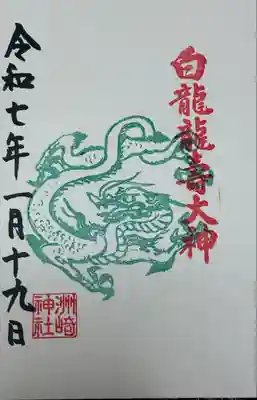 白龍龍寿大神
令和七年一月十九日
洲崎神社